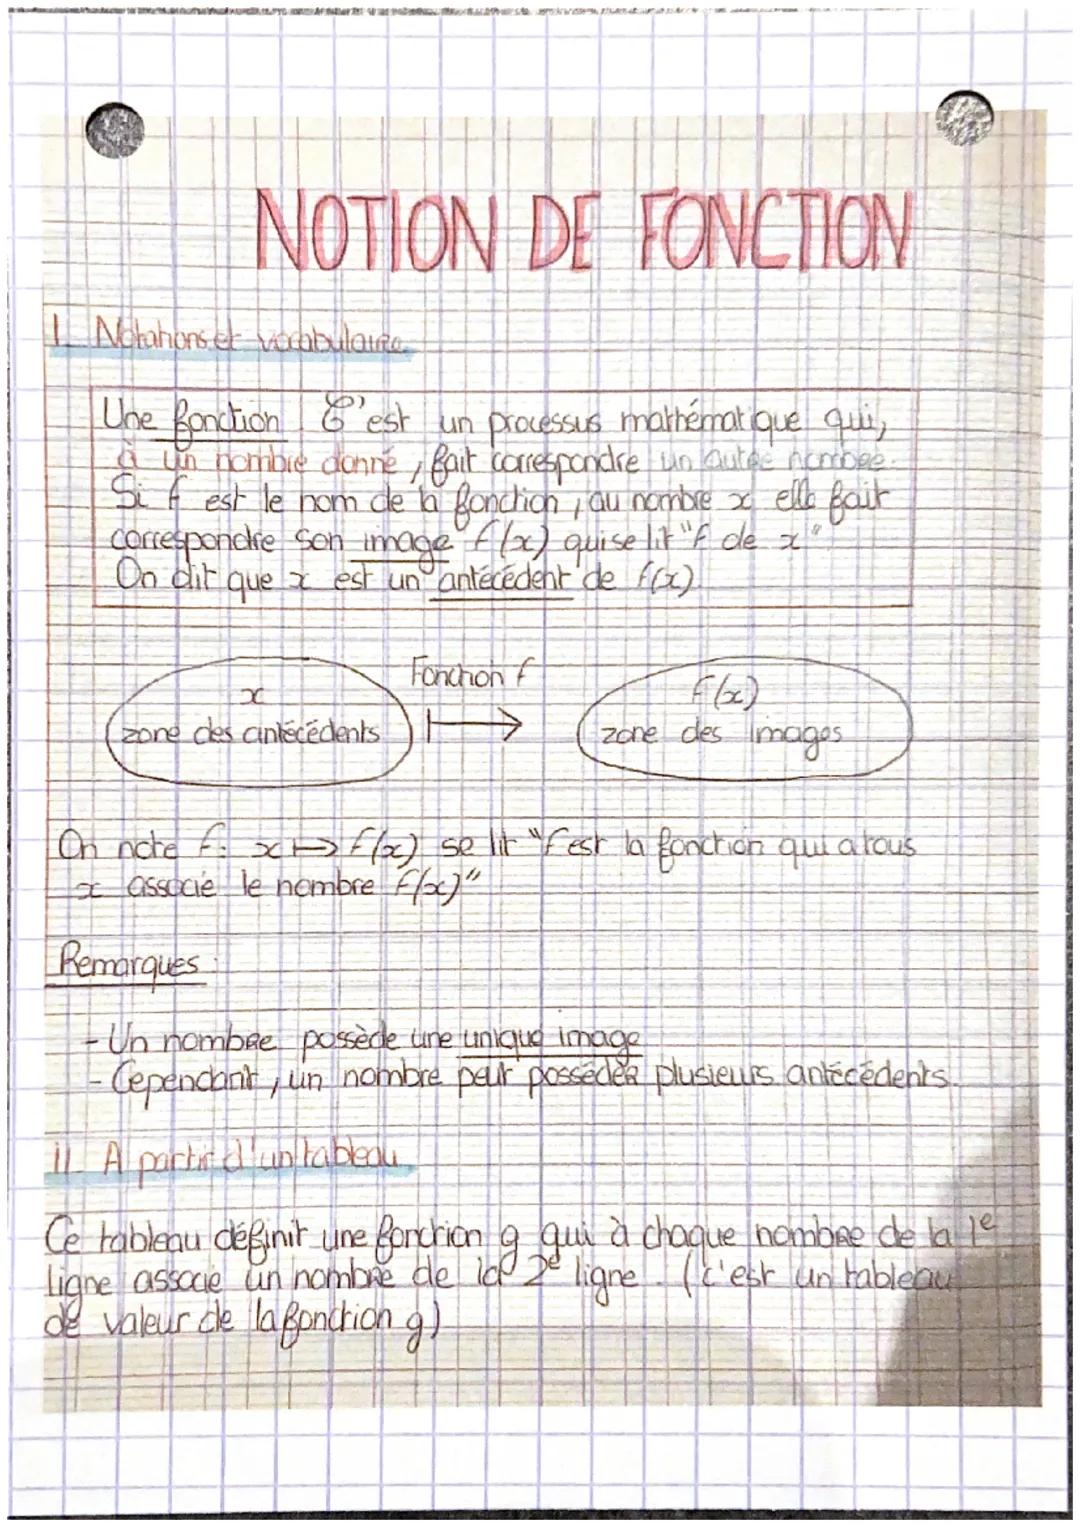 NOTION DE FONCTION
I Notations et vocabulaire
Une fonction : C'est un processus mathématique qui,
à un nombre donné, fait correspondre un autre nombre.
Si f est le nom de la fonction, au nombre x elle fait
correspondre son image f(x) qui se lit "f de x"
On dit que x est un antécédent de f(x).
Fonction f
x
zone des antécédents
f(x)
zone des images
On note f: x ↦ f(x) se lit "f est la fonction qui a tous
x associe le nombre f(x)"
Remarques :
- Un nombre possède une unique image
- Cependant, un nombre peut posséder plusieurs antécédents.
II A partir d'un tableau
Ce tableau définit une fonction g qui à chaque nombre de la 1e
ligne associe un nombre de la 2e ligne. (c'est un tableau
de valeur de la fonction g)